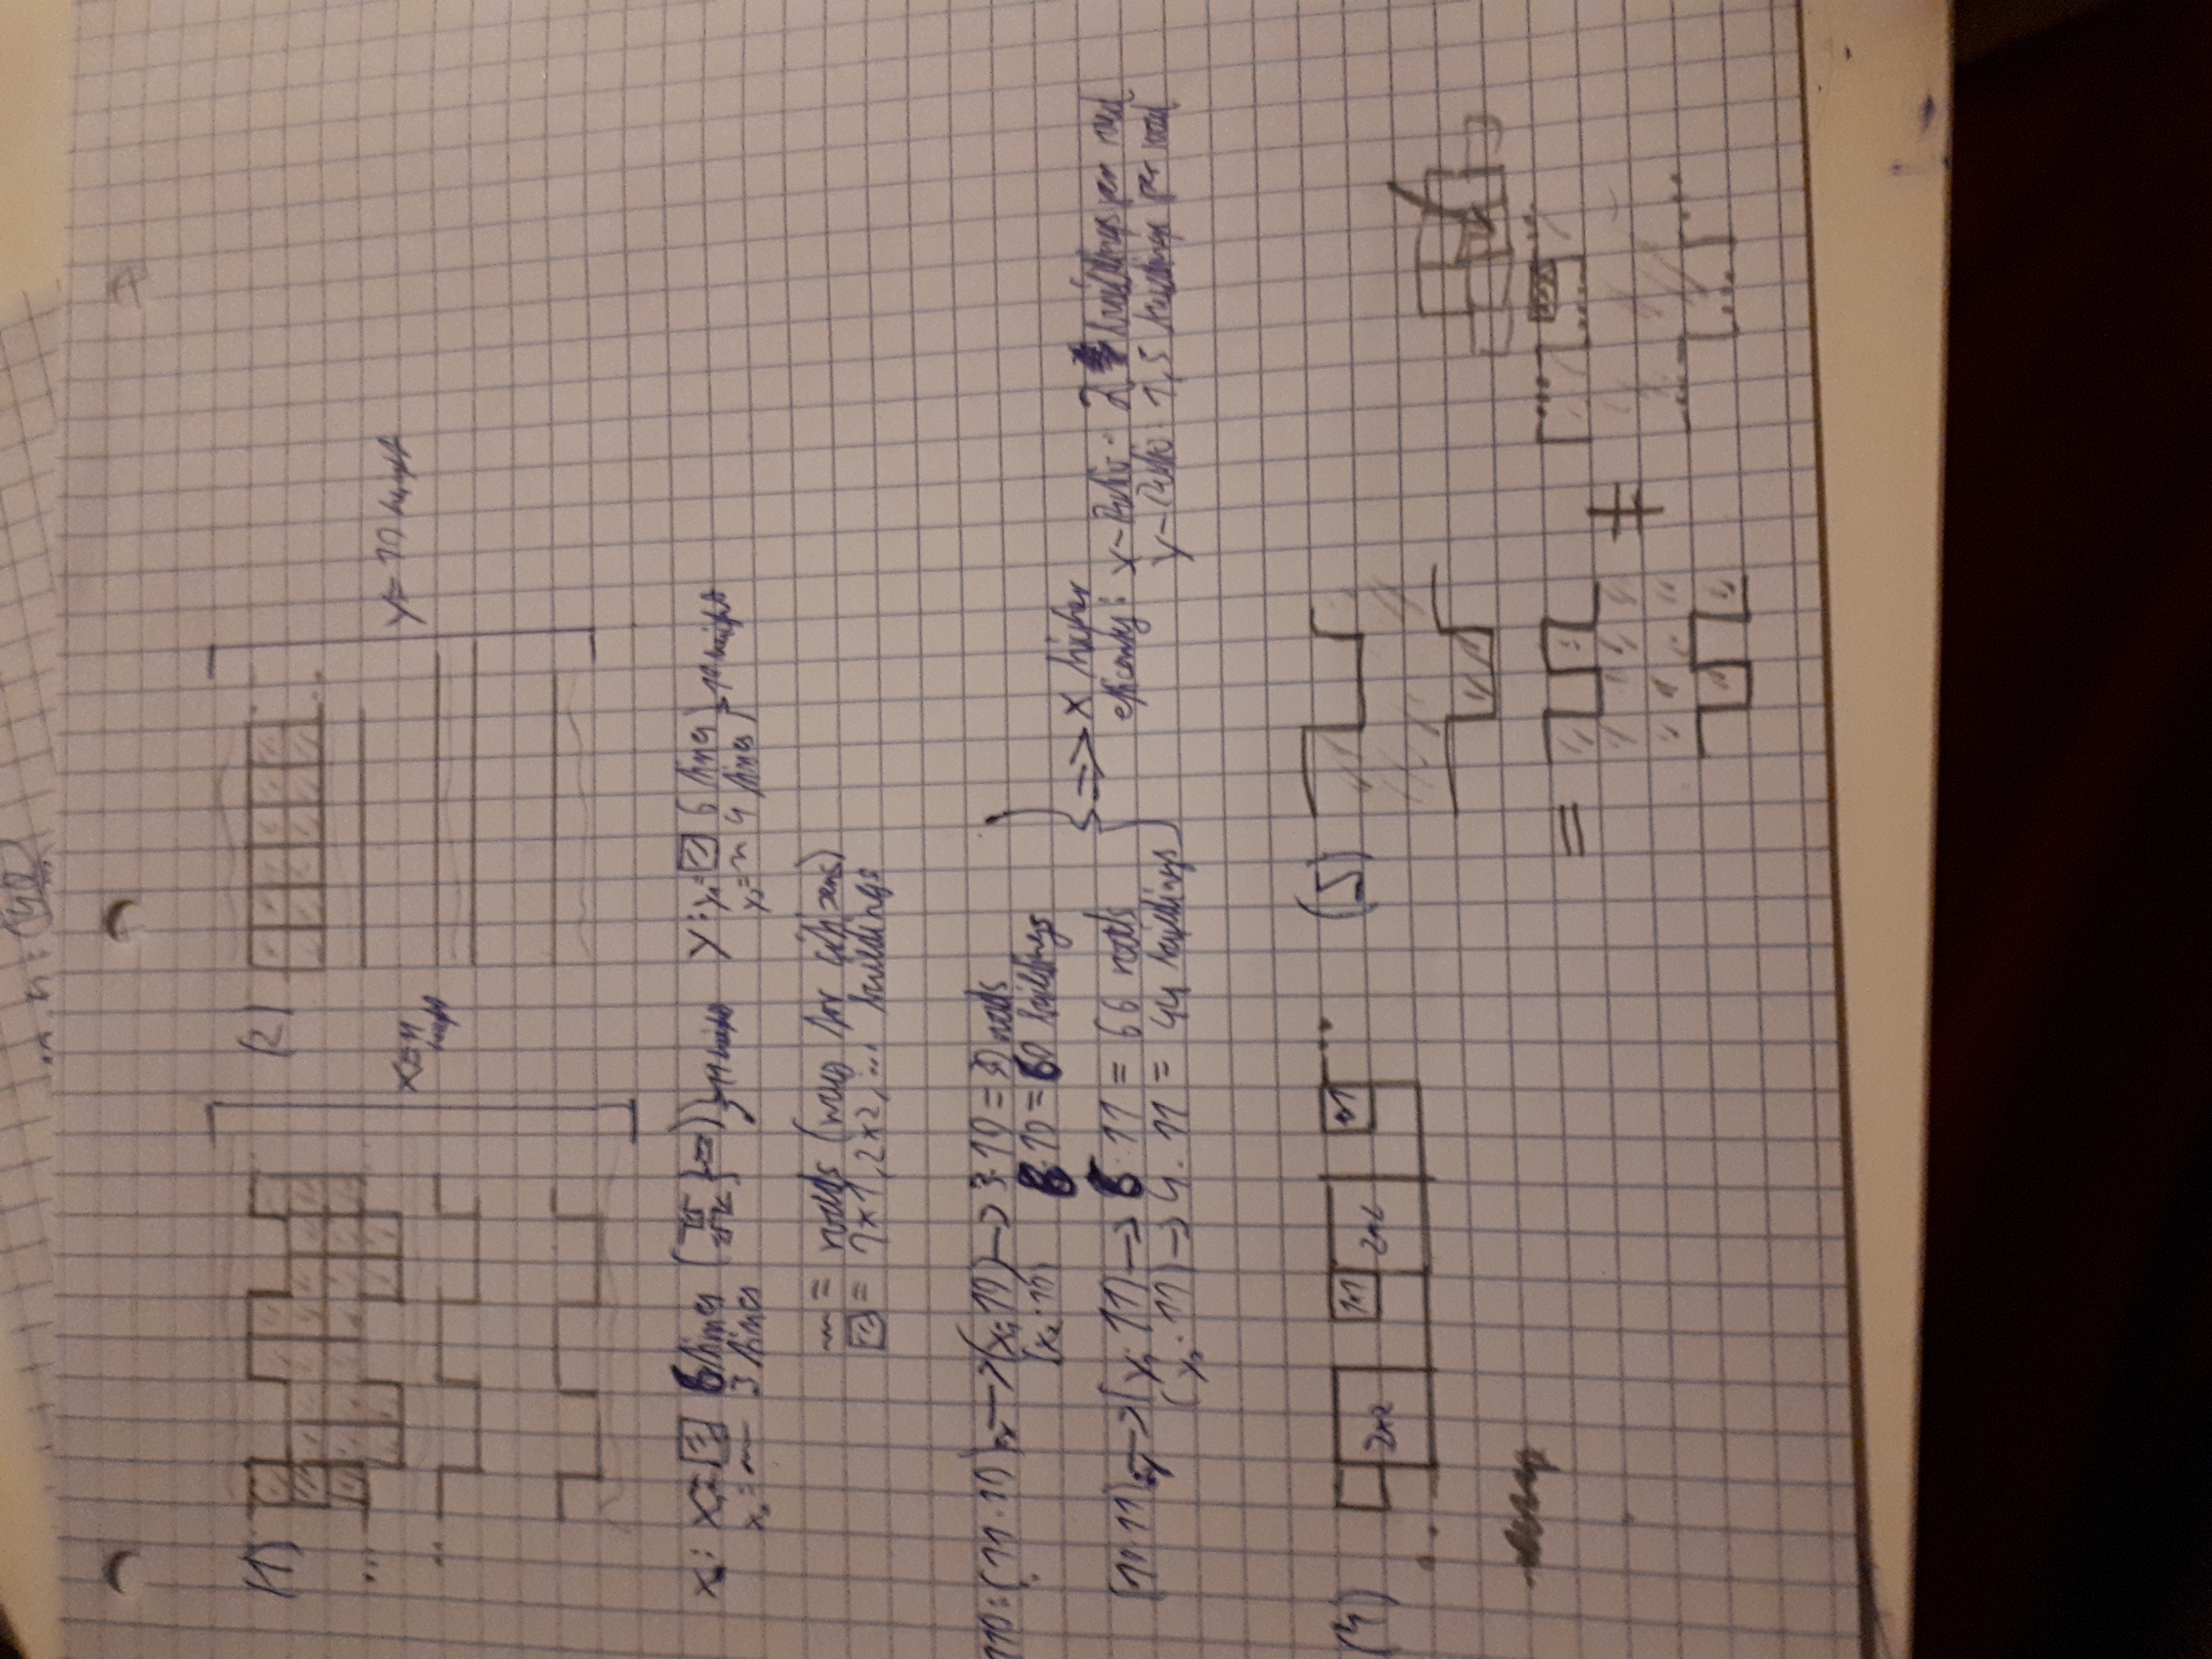 (1)
(2)
x = 11
height
y = 10 height
x: x₁ = 6 lines
x₂ = 3 lines
11 height
y: x₁ = 6 lines
x₂ = 4 lines
= roads
= 1x1, 2x2, ... buildings
110: (11 · 10) → (x₁ · 10) → 3 · 10 = 30 roads
(x₂ · 10) 6 · 10 = 60 buildings
(11 · 11) → (x₁ · 11) → 6 · 11 = 66 roads
(x₂ · 11) → 4 · 11 = 44 buildings
=> x higher
efficiency: x-Ratio: 2 buildings per road
y-Ratio: 1,5 buildings per road
(4)
2x2
1x1
2x2
1x1
...
(5)
=
≠